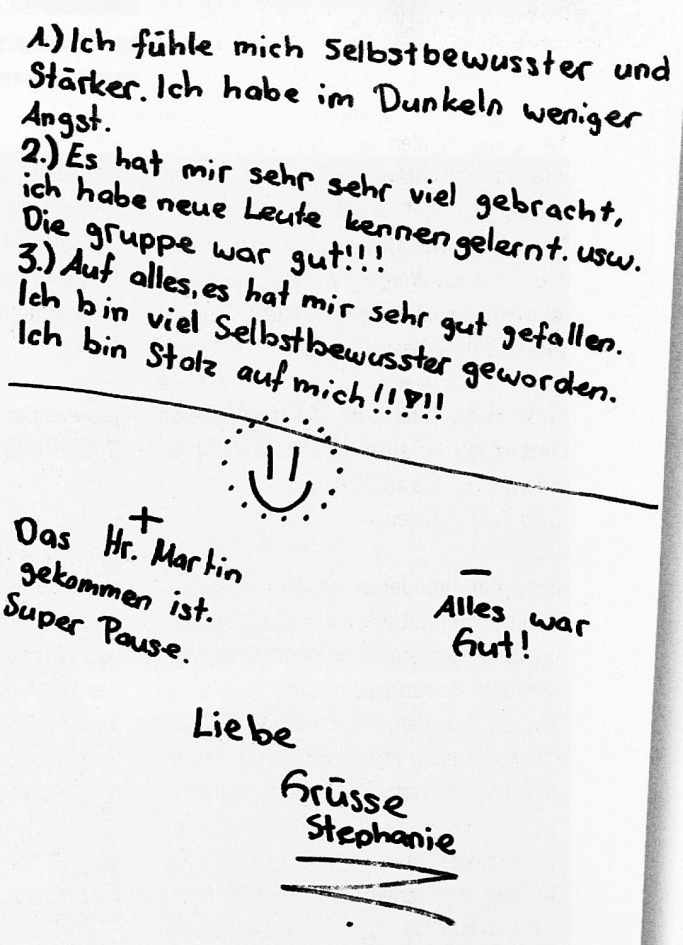 1.) Ich fühle mich Selbstbewusster und
Stärker. Ich habe im Dunkeln weniger
Angst.
2.) Es hat mir sehr sehr viel gebracht,
ich habe neue Leute kennengelernt. usw.
Die gruppe war gut!!!
3.) Auf alles, es hat mir sehr gut gefallen.
Ich bin viel Selbstbewusster geworden.
Ich bin Stolz auf mich!!!!!
+
Das Hr. Martin
gekommen ist.
Super Pause.
–
Alles war
Gut!
Liebe
Grüsse
Stephanie